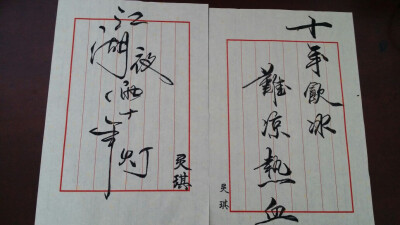 江湖夜雨十年灯
灵琪
十年飲冰
難凉熱血
灵琪